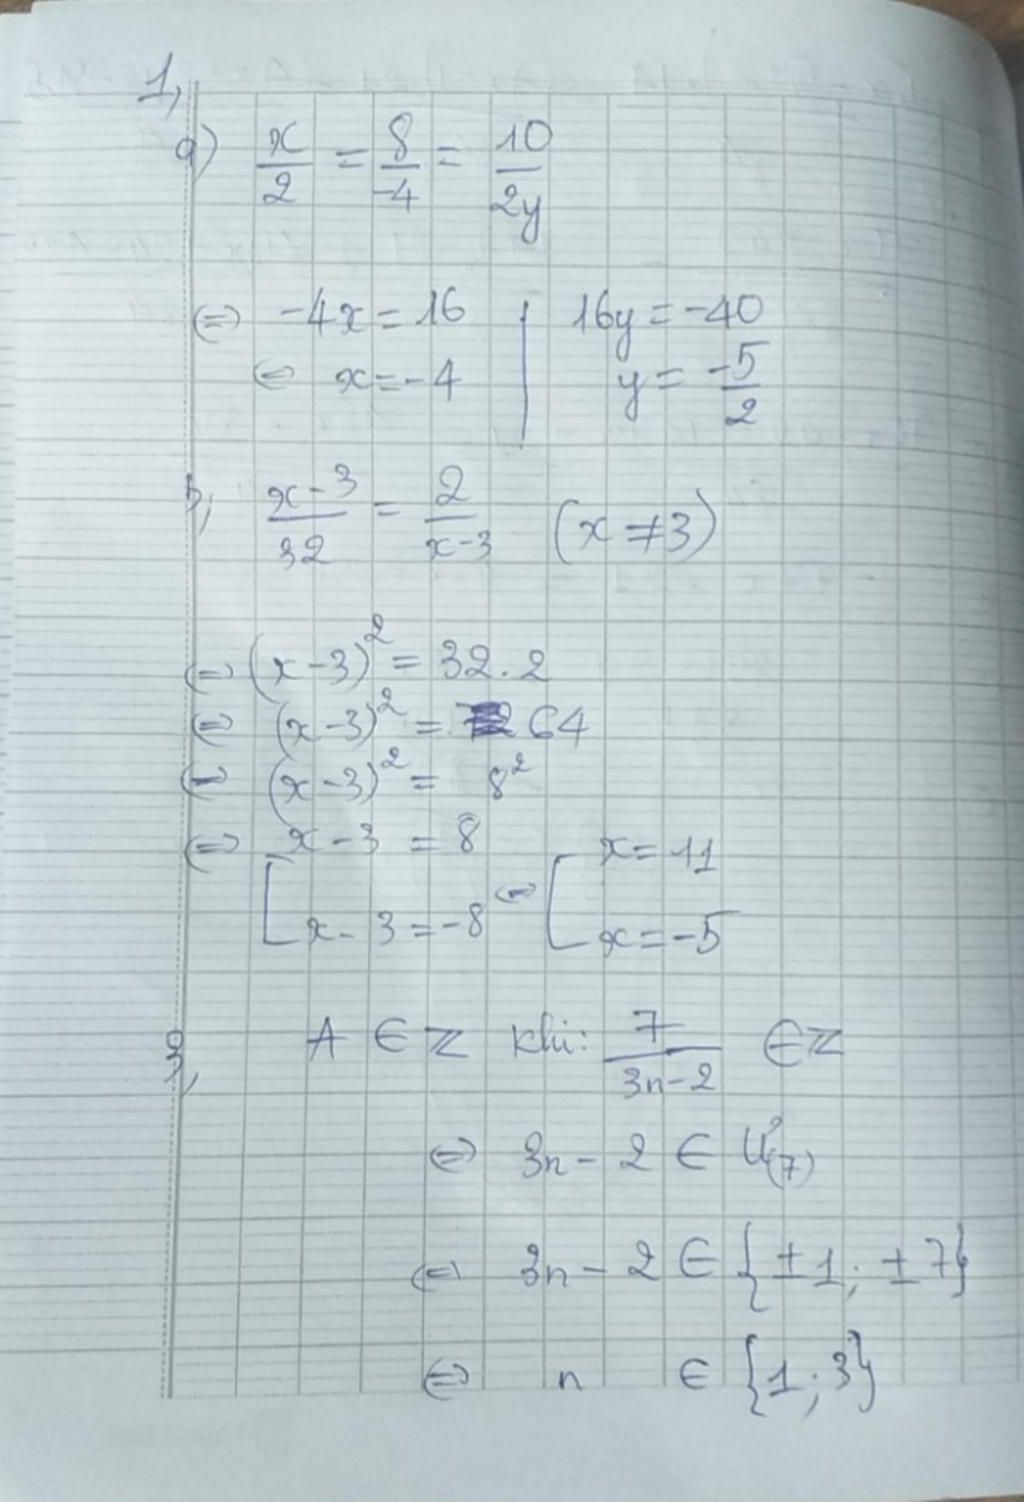 1,
a) x/2 = 8/-4 = 10/2y
⇔ -4x = 16 | 16y = -40
⇔ x = -4 | y = -5/2
b, x-3/32 = 2/x-3 (x ≠ 3)
⇔ (x-3)² = 32.2
⇔ (x-3)² = 64
⇔ (x-3)² = 8²
⇔ [ x-3 = 8 ⇔ [ x = 11
x-3 = -8 x = -5
3, A ∈ Z khi: 7/3n-2 ∈ Z
⇔ 3n-2 ∈ Ư(7)
⇔ 3n-2 ∈ {±1; ±7}
⇔ n ∈ {1; 3}